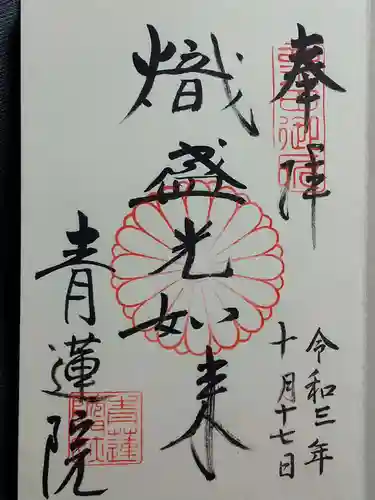 奉拝
熾盛光如来
令和三年
十月十七日
青蓮院